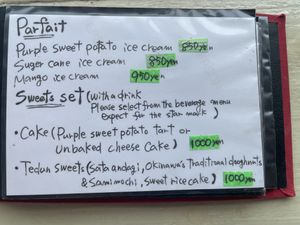 Parfait
Purple sweet potato ice cream 850yen
Suger cane ice cream 850yen
Mango ice cream 950yen
Sweets set (with a drink
Please select from the beverage menu
Expect for the star milk)
• Cake (Purple sweet potato tart or
unbaked cheese Cake) 1000yen
• Tedan Sweets (Sata andagi, Okinawa's Traditional doughnuts
& Sannimochi, sweet rice cake) 1000yen